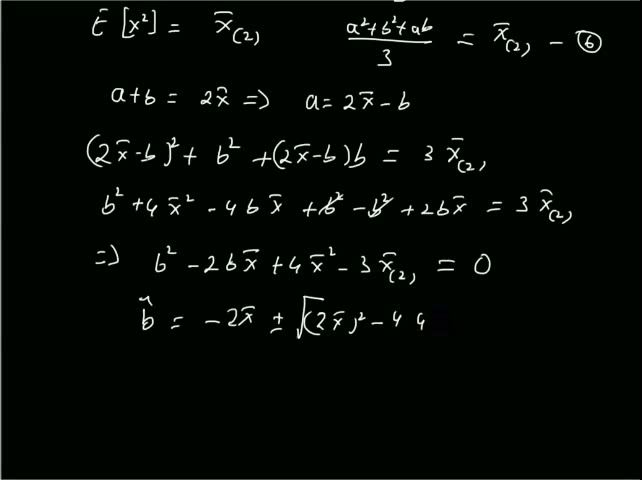 E [x²] = x̄₍₂₎   (a²+b²+ab)/3 = x̄₍₂₎ – ⑥
a+b = 2x̄ => a = 2x̄ – b
(2x̄–b)² + b² + (2x̄–b)b = 3 x̄₍₂₎
b² + 4x̄² – 4bx̄ + b² – b² + 2bx̄ = 3 x̄₍₂₎
=> b² – 2bx̄ + 4x̄² – 3x̄₍₂₎ = 0
b̂ = – 2x̄ ± √(2x̄)² – 4 4